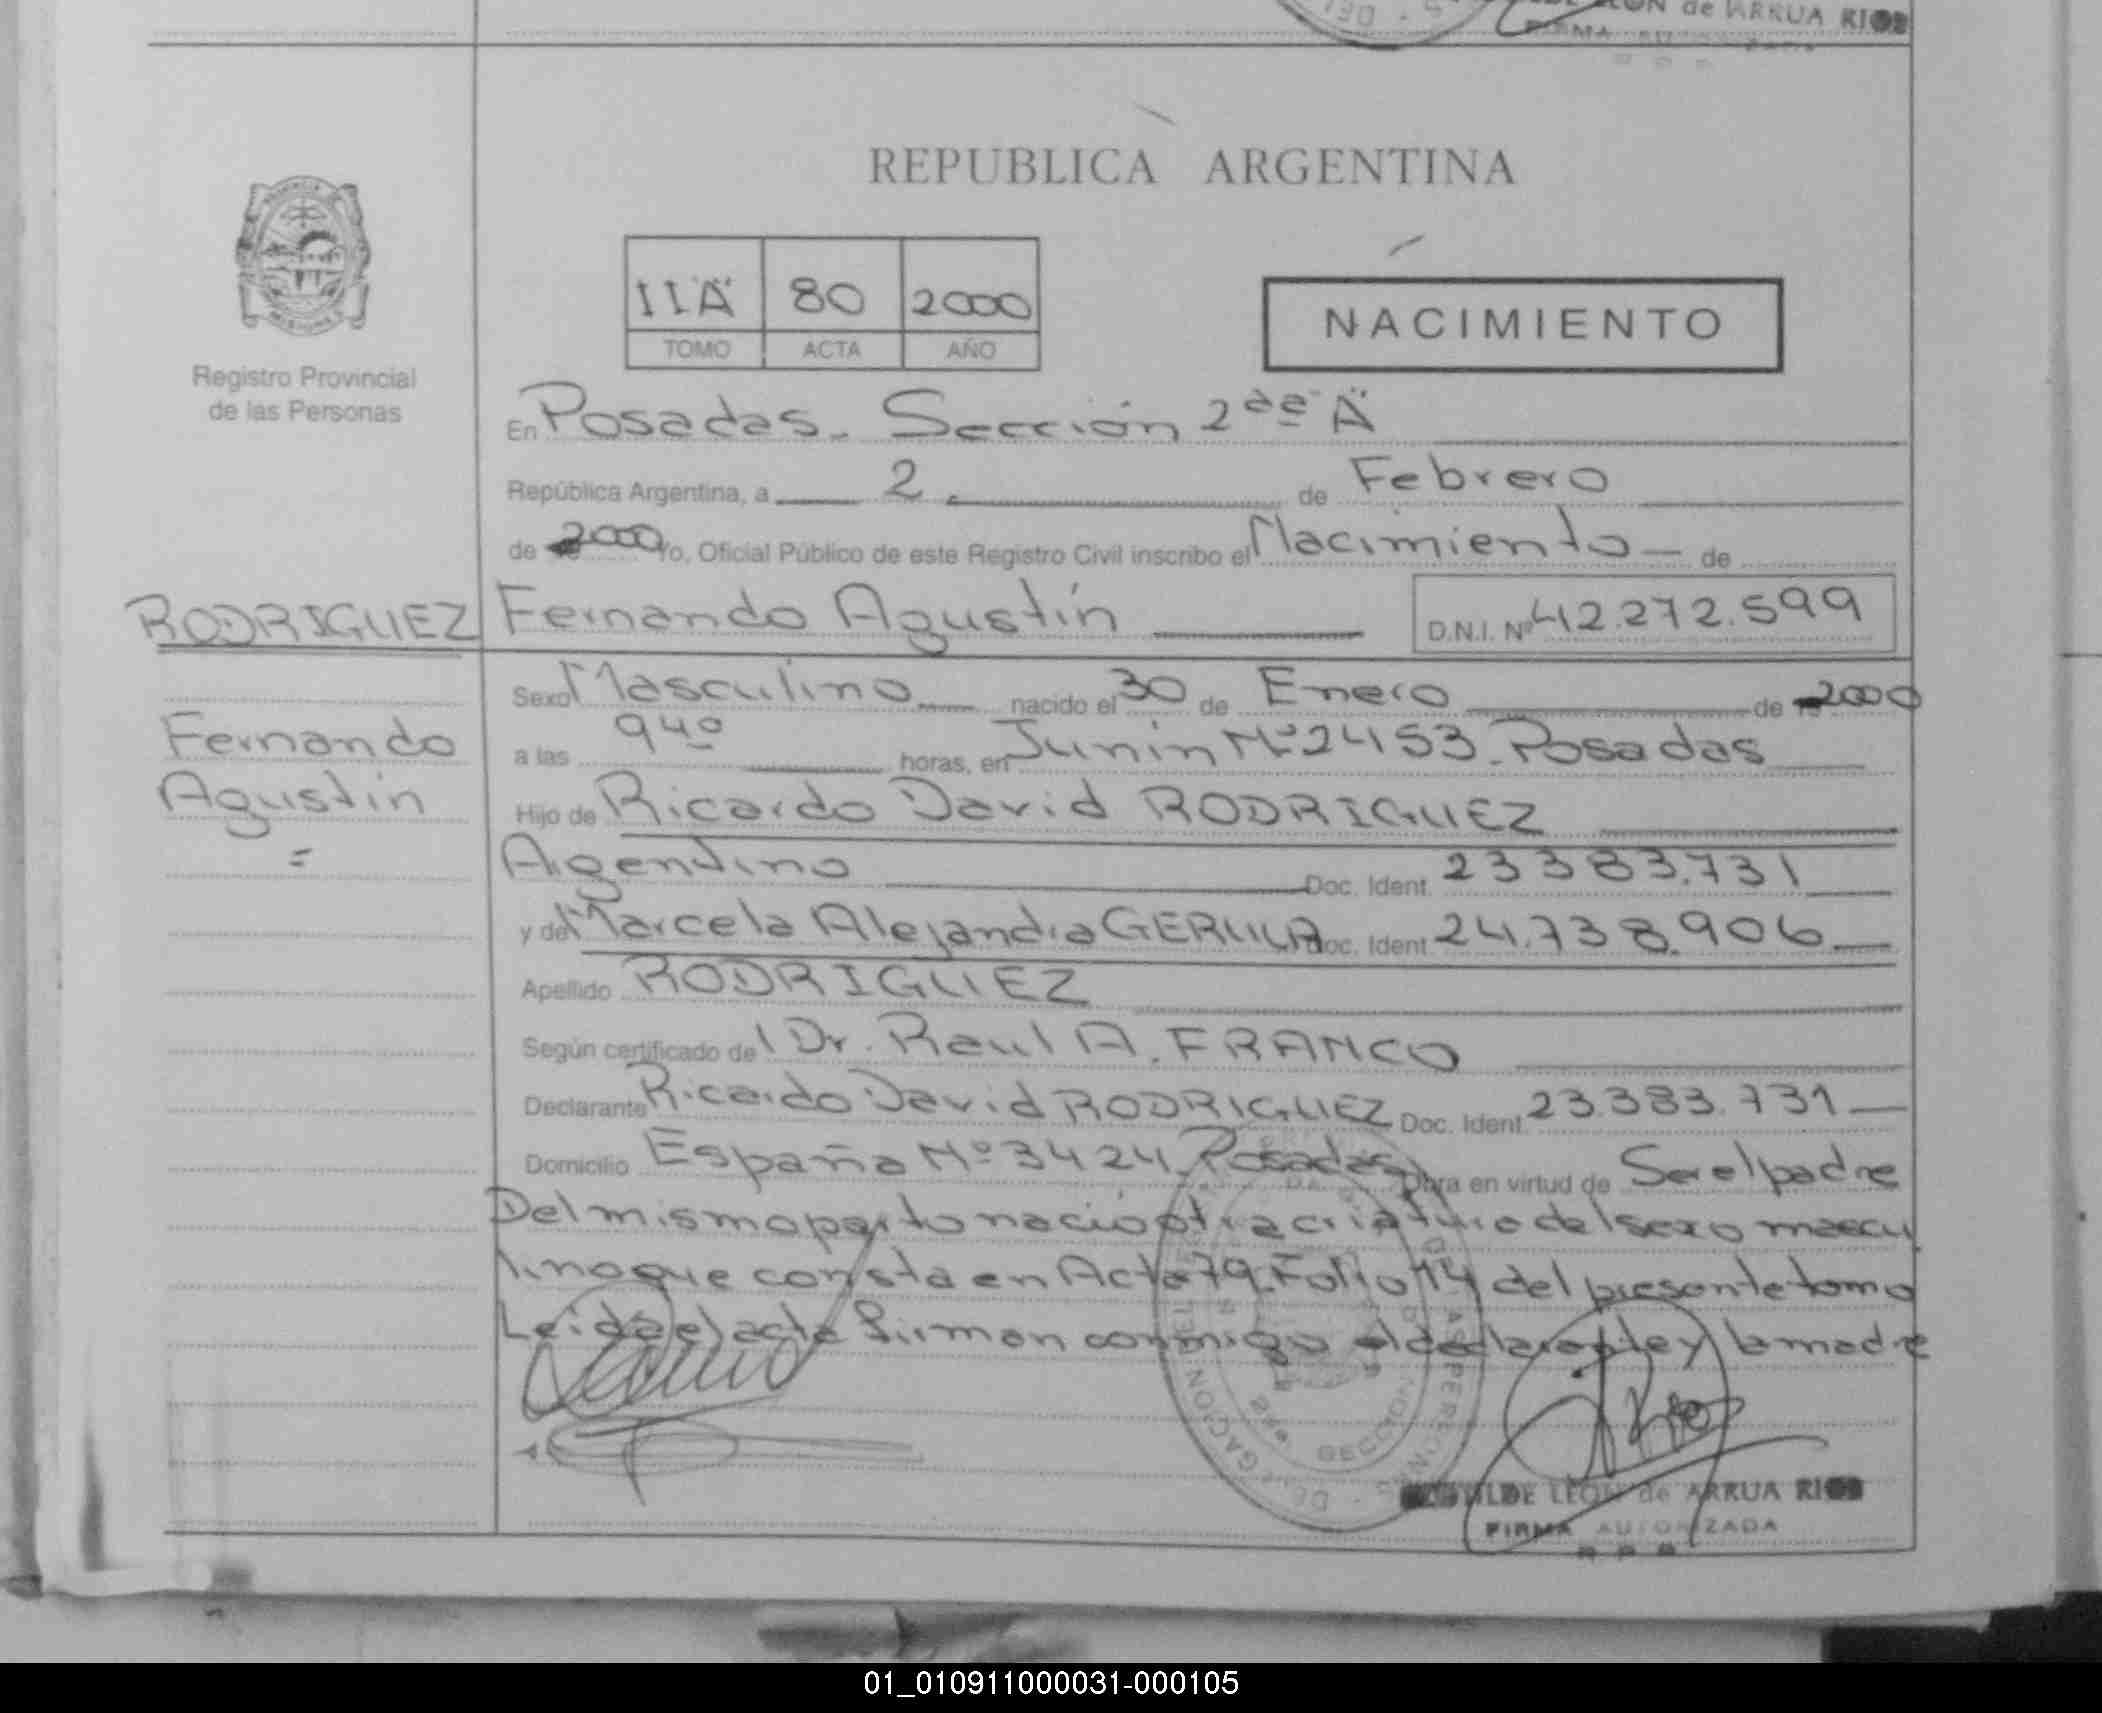 LEON de ARRUA RIOS
REPUBLICA ARGENTINA
IIA 80 2000
TOMO ACTA AÑO
NACIMIENTO
Registro Provincial
de las Personas
En Posadas. Sección 2da "A"
República Argentina, a 2 de Febrero
de 2000 Yo, Oficial Público de este Registro Civil inscribo el Nacimiento de
RODRIGUEZ Fernando Agustín D.N.I. Nº 42.272.599
Sexo Masculino nacido el 30 de Enero de 2000
Fernando
Agustín
=
a las 9 40 horas, en Junín Nº 2453. Posadas
Hijo de Ricardo David RODRIGUEZ
Argentino Doc. Ident. 23383.731
y de Marcela Alejandra Doc. Ident. 24.738.906
Apellido RODRIGUEZ
Según certificado del Dr. Raul A. FRANCO
Declarante Ricardo David RODRIGUEZ Doc. Ident. 23.383.731
Domicilio España Nº 3424. Posadas Obra en virtud de Ser el padre
Del mismo parto nació otra criatura del sexo mascu
lino que consta en Acta 79. Folio 14 del presente tomo
Leida el acta firman conmigo el declarante y la madre
LEON de ARRUA RIOS
FIRMA AUTORIZADA
01_010911000031-000105